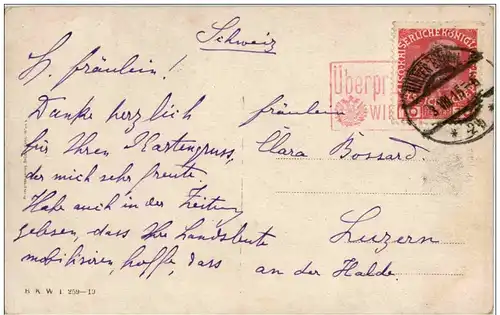 Schweiz
H. Fräulein!
Danke herzlich
für Ihren Kartengruss,
der mich sehr freute.
Habe auch in der Zeitung
gelesen, dass Ihre Landsleute
mobilisiren, hoffe, dass
Fräulein
Clara Bossard
Luzern
an der Halde.
Überpr
WIE
KAISERLICHE KÖNIGL
B. K. W. I. 259-19